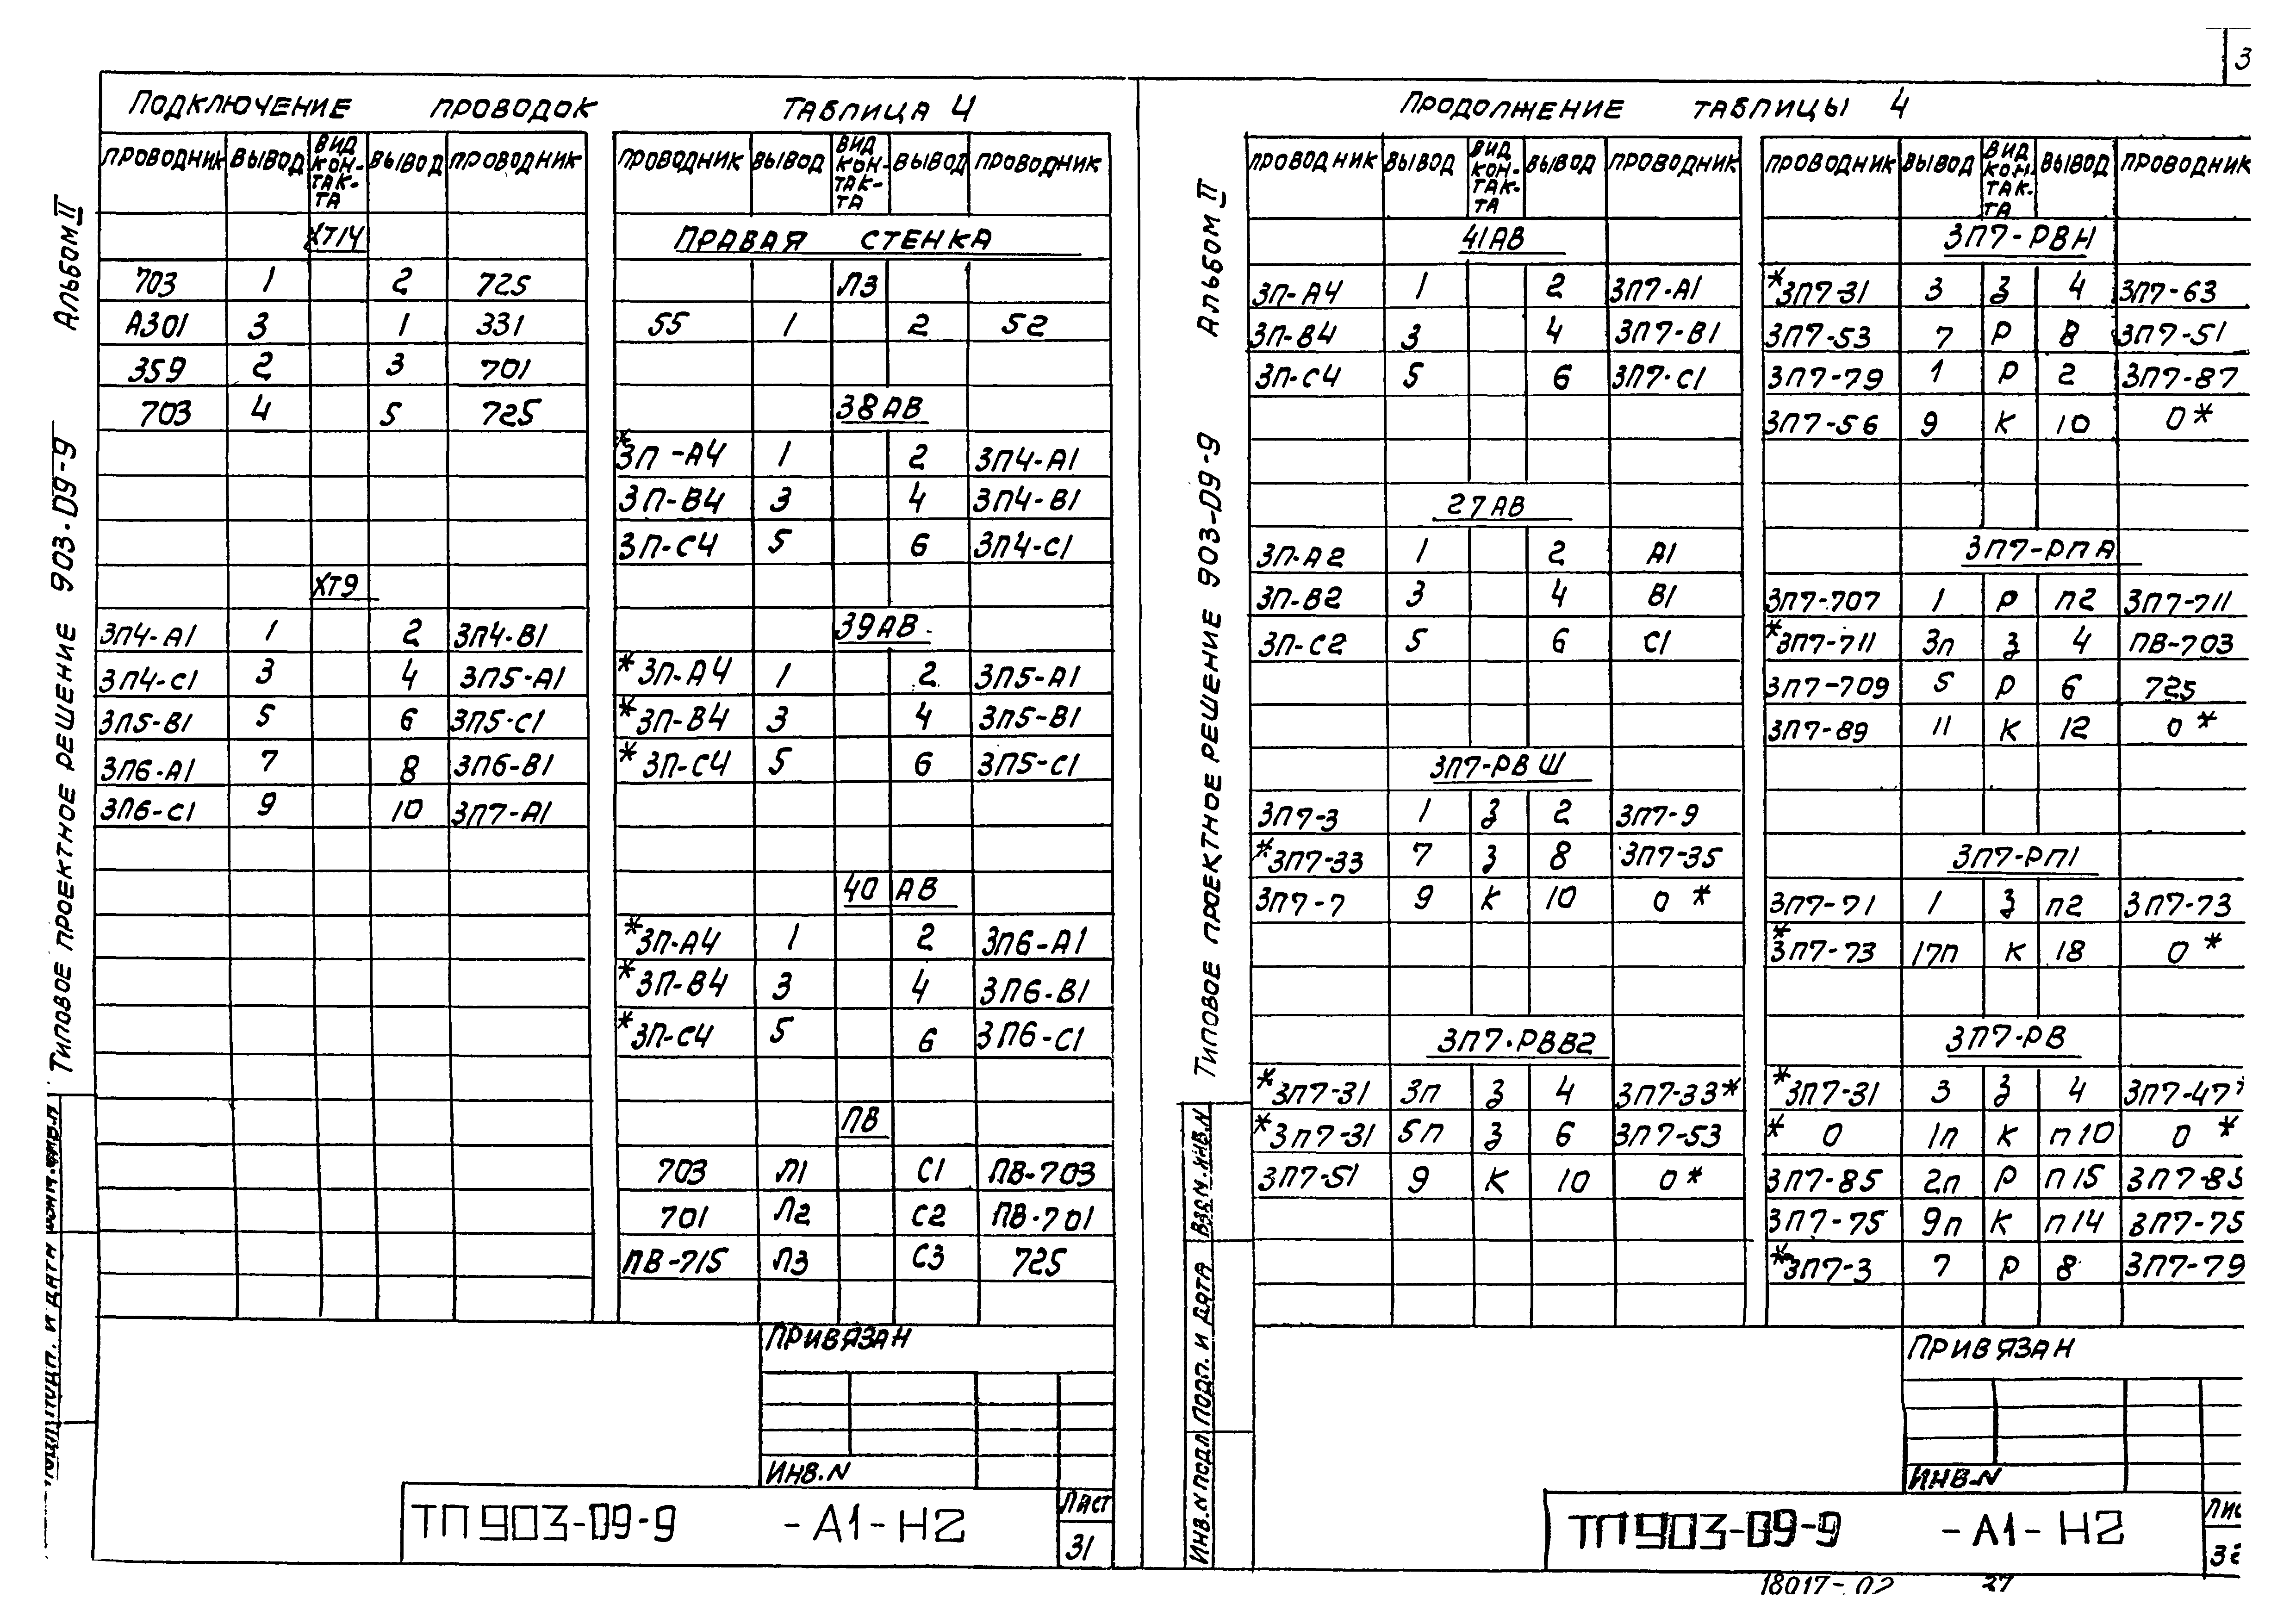 3
ПОДКЛЮЧЕНИЕ ПРОВОДОК ТАБЛИЦА 4
ПРОВОДНИК ВЫВОД ВИД КОН-ТАК-ТА ВЫВОД ПРОВОДНИК
ХТ14
703 1 2 725
А301 3 1 331
359 2 3 701
703 4 5 725
ХТ9
3П4-А1 1 2 3П4-В1
3П4-С1 3 4 3П5-А1
3П5-В1 5 6 3П5-С1
3П6-А1 7 8 3П6-В1
3П6-С1 9 10 3П7-А1
ПРОВОДНИК ВЫВОД ВИД КОН-ТАК-ТА ВЫВОД ПРОВОДНИК
ПРАВАЯ СТЕНКА
Л3
55 1 2 52
38АВ
*3П-А4 1 2 3П4-А1
3П-В4 3 4 3П4-В1
3П-С4 5 6 3П4-С1
39АВ
*3П-А4 1 2 3П5-А1
*3П-В4 3 4 3П5-В1
*3П-С4 5 6 3П5-С1
40 АВ
*3П-А4 1 2 3П6-А1
*3П-В4 3 4 3П6-В1
*3П-С4 5 6 3П6-С1
ПВ
703 Л1 С1 ПВ-703
701 Л2 С2 ПВ-701
ПВ-715 Л3 С3 725
ПРИВЯЗАН
ИНВ.N
ТП 903-D9-9 -А1-Н2
ЛИСТ
31
АЛЬБОМ II
ТИПОВОЕ ПРОЕКТНОЕ РЕШЕНИЕ 903-D9-9
ПОДП. И ДАТА
ПРОДОЛЖЕНИЕ ТАБЛИЦЫ 4
ПРОВОДНИК ВЫВОД ВИД КОН-ТАК-ТА ВЫВОД ПРОВОДНИК
41АВ
3П-А4 1 2 3П7-А1
3П-В4 3 4 3П7-В1
3П-С4 5 6 3П7-С1
27АВ
3П-А2 1 2 А1
3П-В2 3 4 В1
3П-С2 5 6 С1
3П7-РВШ
3П7-3 1 З 2 3П7-9
*3П7-33 7 З 8 3П7-35
3П7-7 9 К 10 0 *
3П7-РВВ2
*3П7-31 3п З 4 3П7-33*
*3П7-31 5п З 6 3П7-53
3П7-51 9 К 10 0*
ПРОВОДНИК ВЫВОД ВИД КОН-ТАК-ТА ВЫВОД ПРОВОДНИК
3П7-РВН
*3П7-31 3 З 4 3П7-63
3П7-53 7 Р 8 3П7-51
3П7-79 1 Р 2 3П7-87
3П7-56 9 К 10 0*
3П7-РПА
3П7-707 1 Р п2 3П7-711
*3П7-711 3п З 4 ПВ-703
3П7-709 5 Р 6 725
3П7-89 11 К 12 0 *
3П7-РП1
3П7-71 1 З п2 3П7-73
*3П7-73 17п К 18 0 *
3П7-РВ
*3П7-31 3 З 4 3П7-47*
* 0 1п К п10 0 *
3П7-85 2п Р п15 3П7-85
3П7-75 9п К п14 3П7-75
*3П7-3 7 Р 8 3П7-79
ПРИВЯЗАН
ИНВ.N
ТП 903-D9-9 -А1-Н2
АЛЬБОМ II
ТИПОВОЕ ПРОЕКТНОЕ РЕШЕНИЕ 903-D9-9
ИНВ.N ПОДЛ ПОДП. И ДАТА ВЗАМ.ИНВ.N
18017-02 37